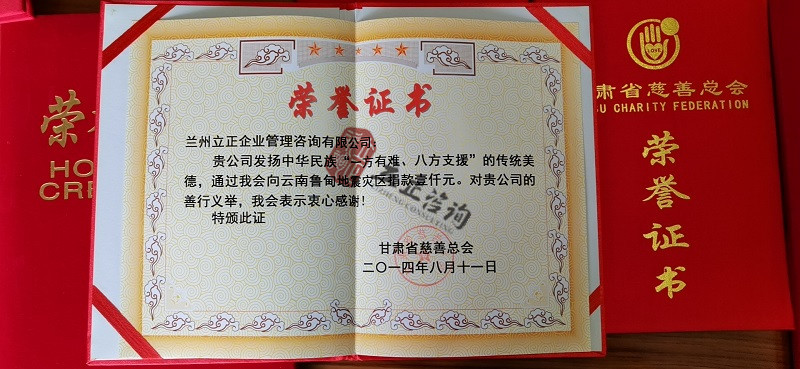 荣誉证书
兰州立正企业管理咨询有限公司：
贵公司发扬中华民族“一方有难、八方支援”的传统美
德，通过我会向云南鲁甸地震灾区捐款壹仟元。对贵公司的
善行义举，我会表示衷心感谢！
特颁此证
甘肃省慈善总会
二〇一四年八月十一日
立正咨询
荣
HO
CRE
LOVE
肃省慈善总会
U CHARITY FEDERATION
荣誉证书